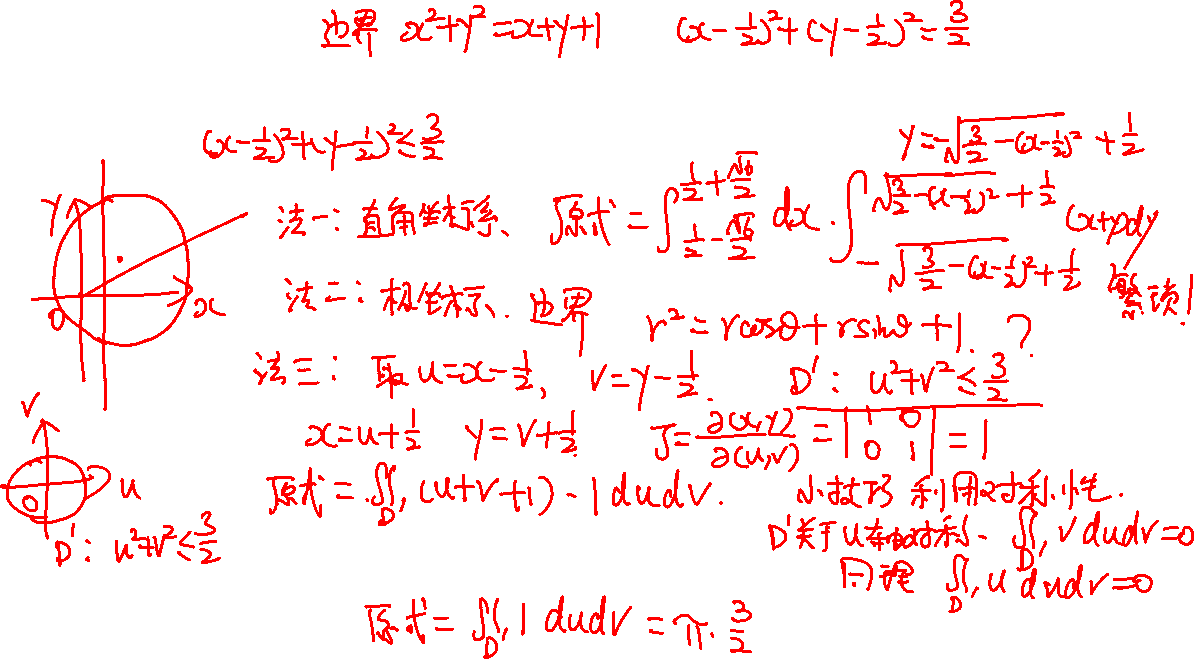 边界 x²+y²=x+y+1 (x-1/2)²+(y-1/2)²=3/2
(x-1/2)²+(y-1/2)²≤3/2
y=-√(3/2-(x-1/2)²)+1/2
法一:直角坐标系、 原式=∫_{1/2-√6/2}^{1/2+√6/2} dx·∫_{-√(3/2-(x-1/2)²)+1/2}^{√(3/2-(x-1/2)²)+1/2} (x+y)dy
繁琐!
y
x
O
法二:极坐标、边界 r²=rcosθ+rsinθ+1. ?
法三: 取u=x-1/2, v=y-1/2. D': u²+v²≤3/2
x=u+1/2 y=v+1/2 J=∂(x,y)/∂(u,v)=|1 0; 0 1|=1
v
u
O
D': u²+v²≤3/2
原式=∬_{D'}(u+v+1)·1dudv.
小技巧 利用对称性.
D'关于u轴对称、∬_{D'} v dudv=0
同理 ∬_{D'} u dudv=0
原式=∬_{D'} 1 dudv=π·3/2